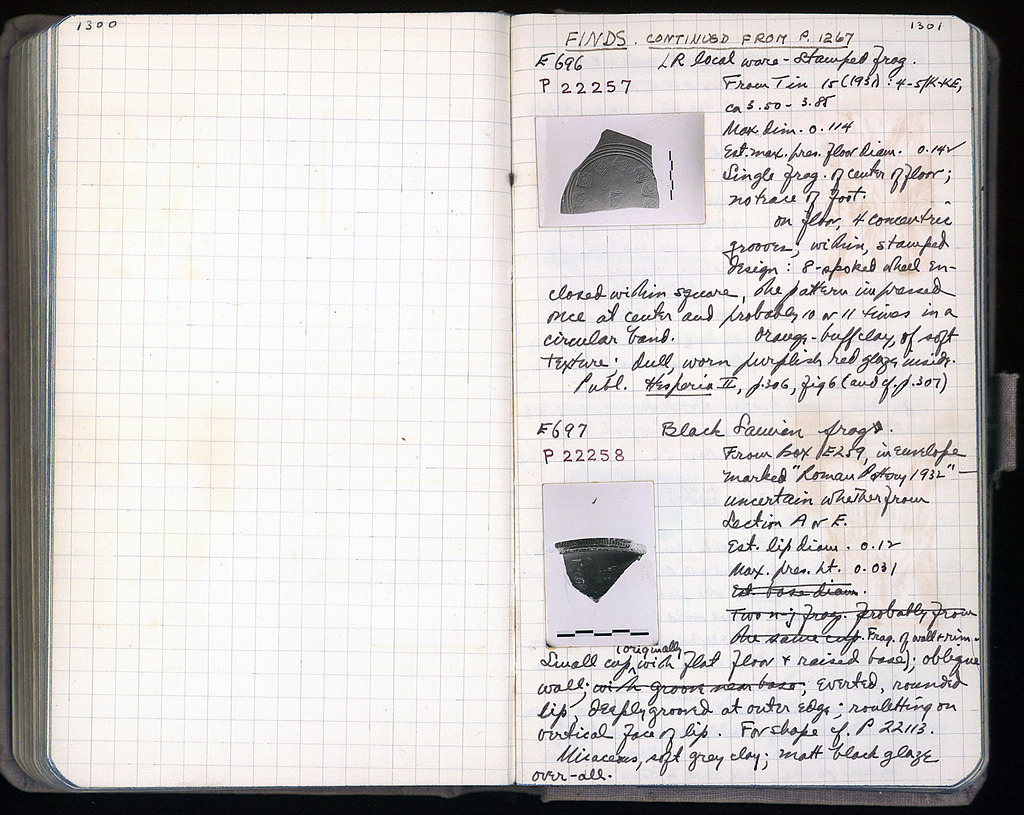 1300
1301
FINDS. CONTINUED FROM P. 1267
E 696 LR local ware - stamped frag.
P 22257 From Tin 15 (1931) : 4-5/K-KE,
ca 3.50 - 3.85
Max. dim. 0.114
Est. max. pres. floor diam. 0.142
Single frag. of center of floor;
no trace of foot.
on floor, 4 concentric
grooves; within, stamped
design : 8-spoked wheel en-
closed within square, the pattern impressed
once at center and probably 10 or 11 times in a
circular band. Orange-buff clay, of soft
texture; dull, worn purplish red glaze inside.
Publ. Hesperia II, p.306, fig 6 (and cf. p.307)
E 697 Black Samian frag.
P 22258 From Box E259, in envelope
marked "Roman Pottery 1932" -
uncertain whether from
Section A or E.
Est. lip diam. 0.12
Max. pres. ht. 0.031
Est. base diam.
Two n-j frag. probably from
the same cup. Frag. of wall + rim.
(originally
Small cup, with flat floor + raised base); oblique
wall; with groove near base; everted, rounded
lip, deeply grooved at outer edge; rouletting on
vertical face of lip. For shape cf. P 22113.
Micaceous, soft grey clay; matt black glaze
over-all.